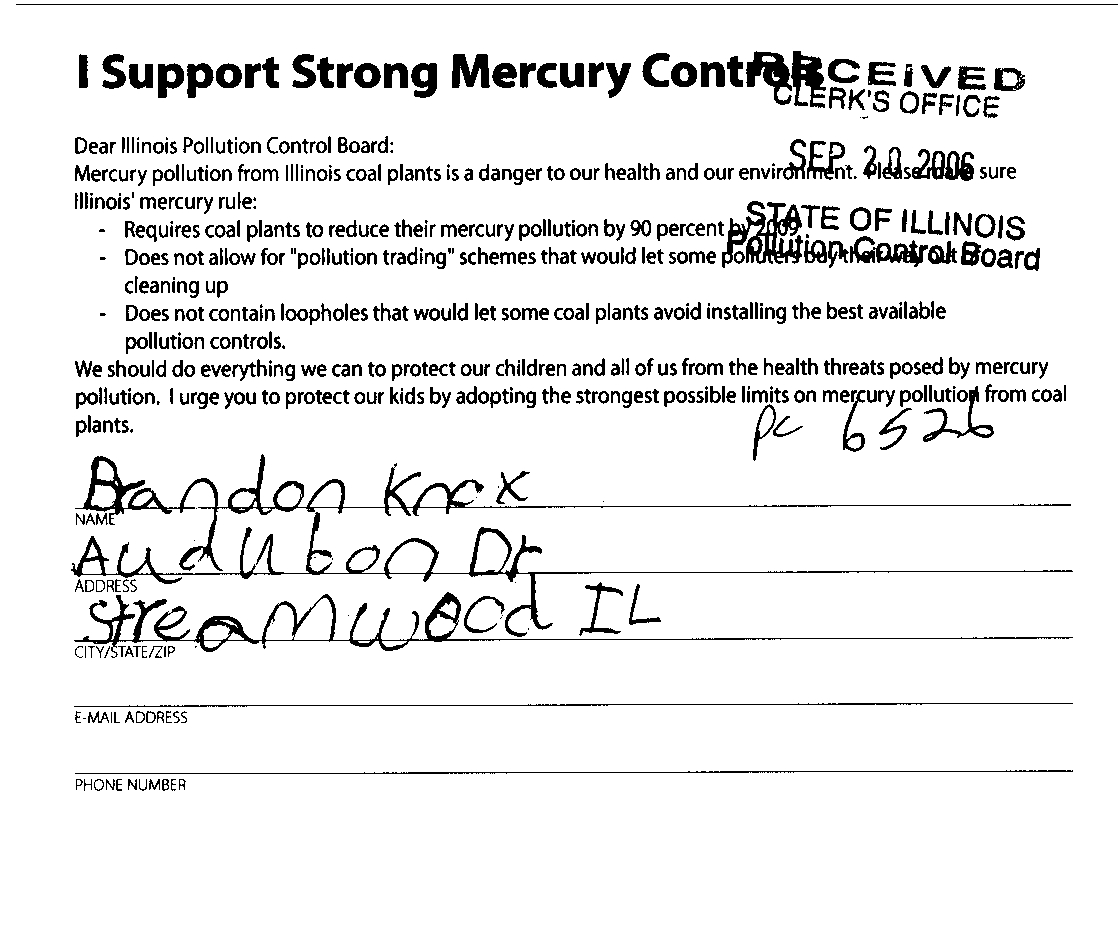 I Support Strong Mercury Control
RECEIVED
CLERK'S OFFICE
SEP. 20 2006
STATE OF ILLINOIS
Pollution Control Board
Dear Illinois Pollution Control Board:
Mercury pollution from Illinois coal plants is a danger to our health and our environment. Please make sure
Illinois' mercury rule:
- Requires coal plants to reduce their mercury pollution by 90 percent by 2009
- Does not allow for "pollution trading" schemes that would let some polluters buy their way out of
cleaning up
- Does not contain loopholes that would let some coal plants avoid installing the best available
pollution controls.
We should do everything we can to protect our children and all of us from the health threats posed by mercury
pollution. I urge you to protect our kids by adopting the strongest possible limits on mercury pollution from coal
plants.
PC 6526
Brandon Knox
NAME
Audubon Dr
ADDRESS
Streamwood IL
CITY/STATE/ZIP
E-MAIL ADDRESS
PHONE NUMBER